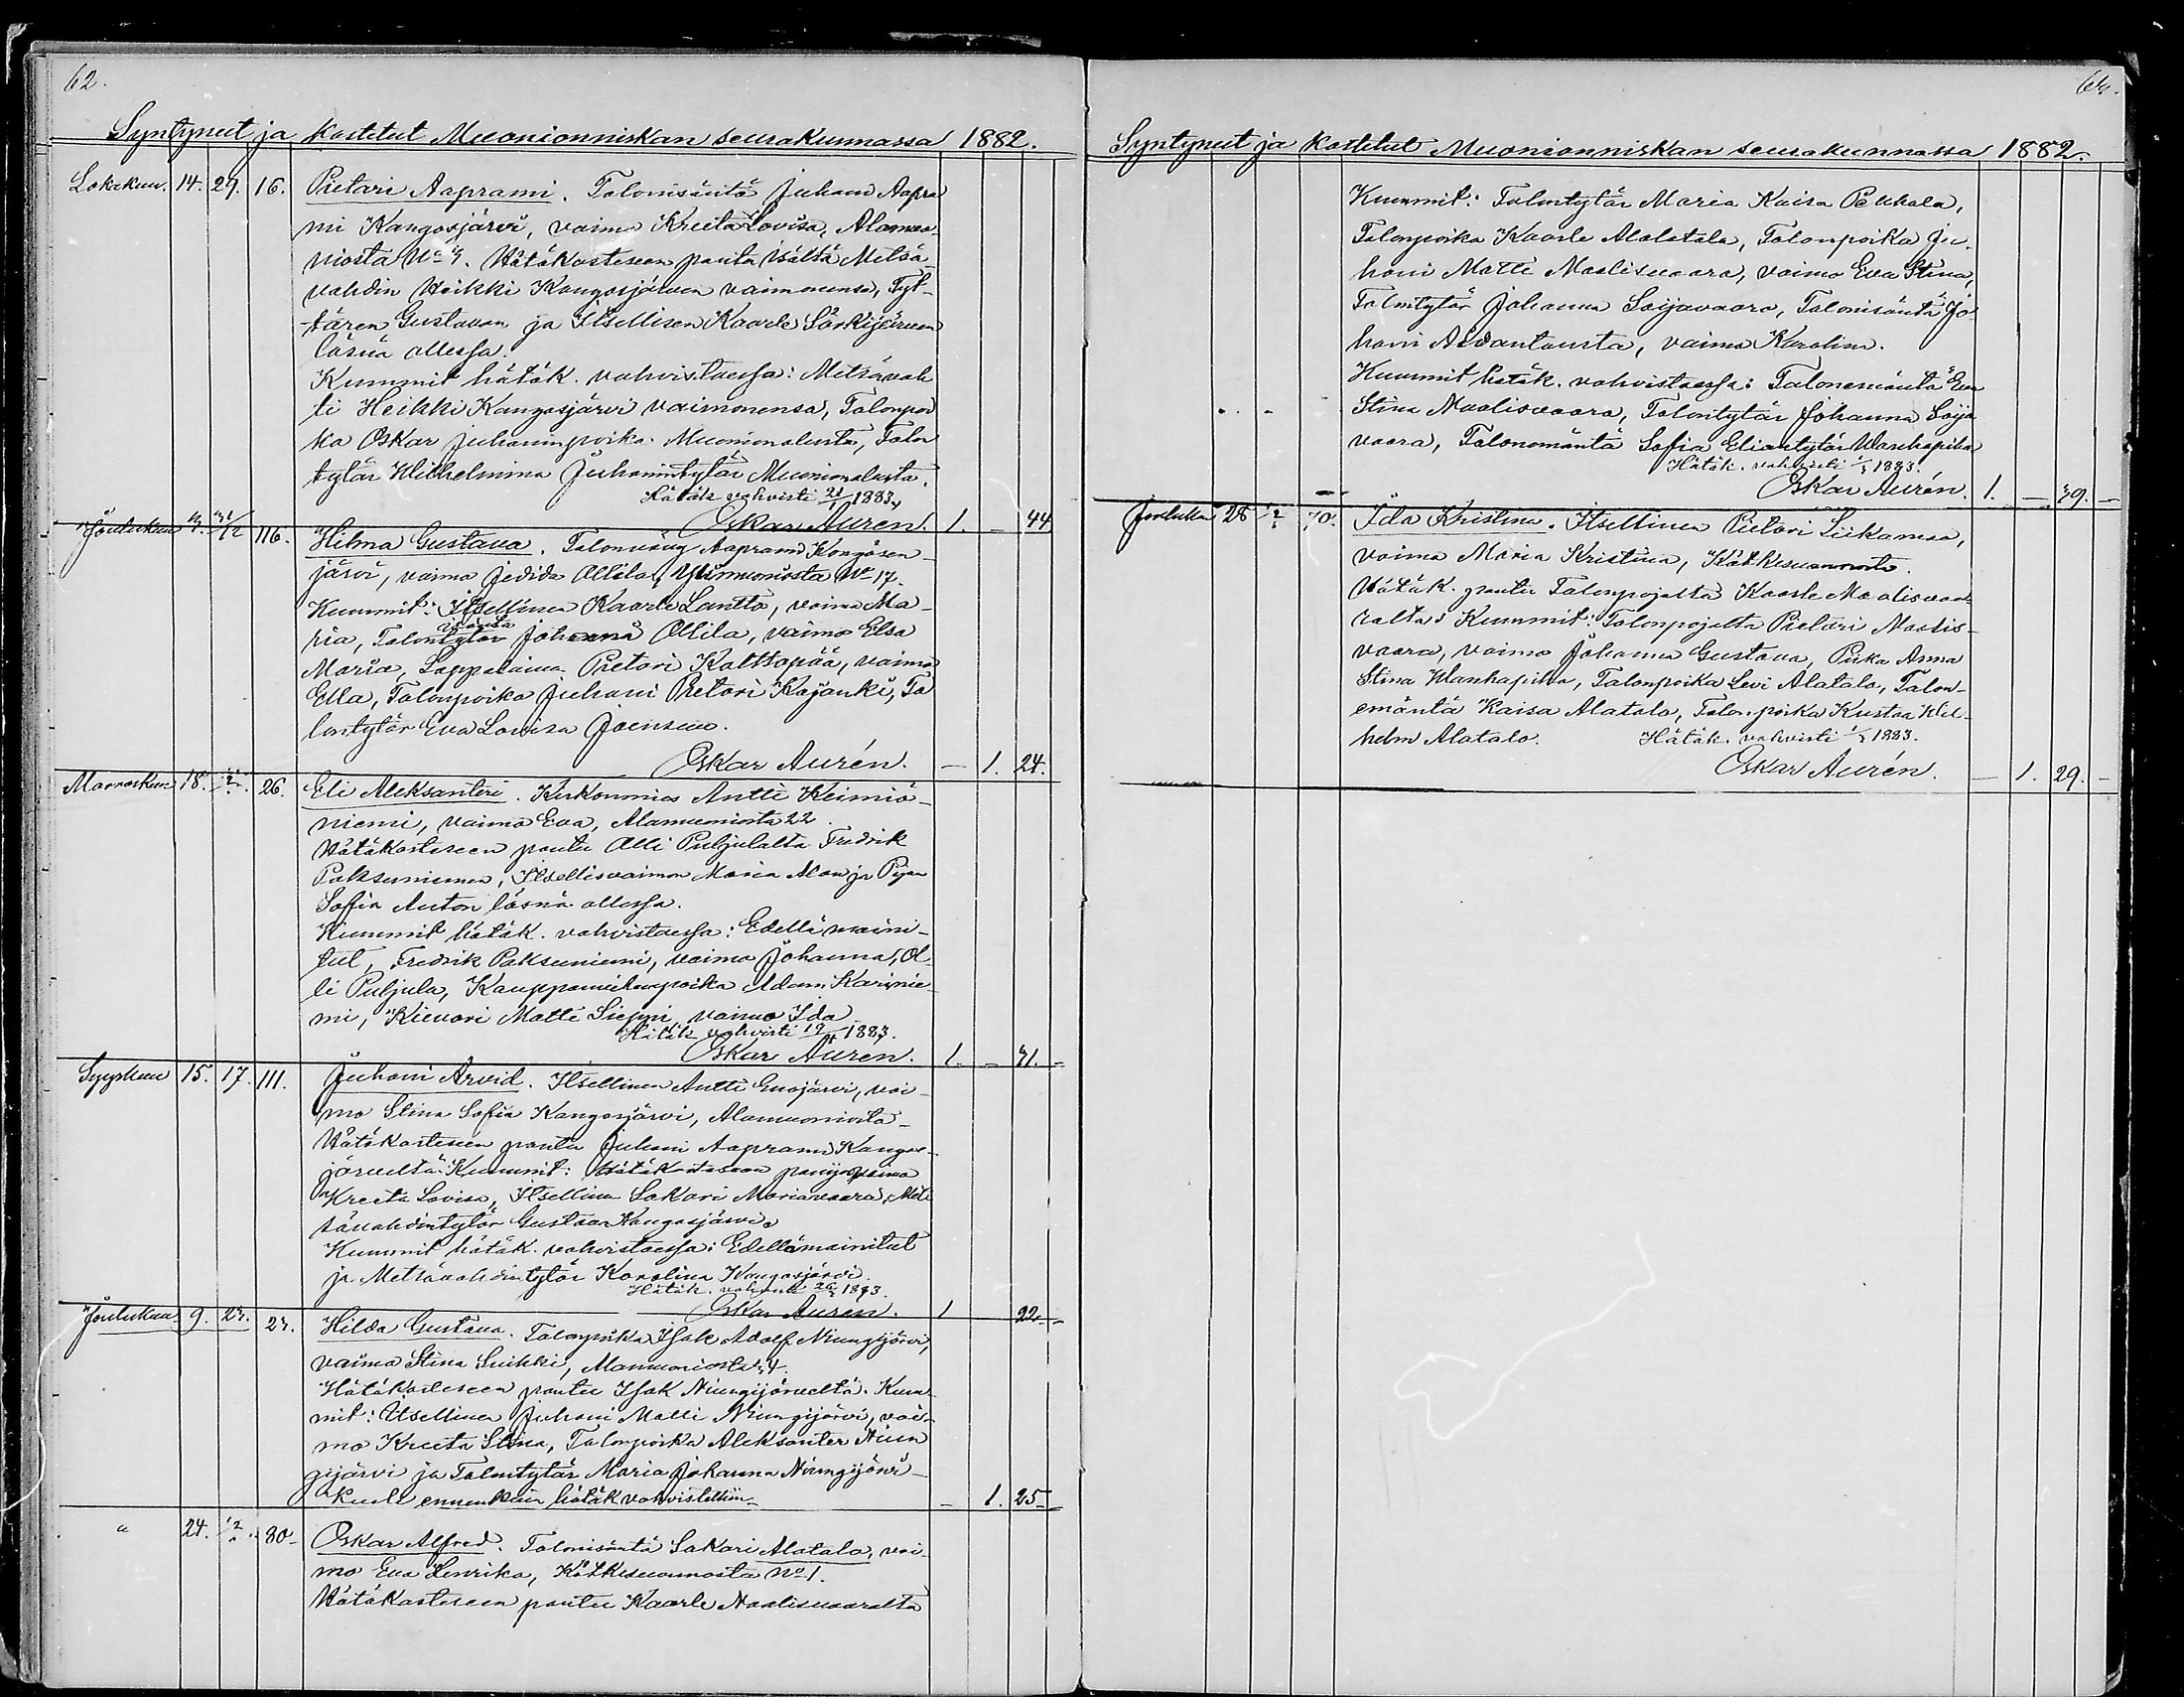 62.
Syntyneet ja kastetut Muonionniskan seurakunnassa 1882.
Lokakuu. 14. 29. 16. Pietari Aaprami. Talonisäntä Juhani Aapra
mi Kangosjärvi, vaimo Kreeta Lovisa, Alamuo-
niosta No Hätäkasteseen pantu isältä Metsä-
vahdin Heikki Kangosjärven vaimonensa, Tyt-
tären Gustavan ja Itsellisen Kaarle Särkijärven
läsnä ollessa.
Kummit hätäk. vahvistaessa: Metsävah
ti Heikki Kangosjärvi vaimonensa, Talonpoi
ka Oskar Juhaninpoika Muonionalusta, Talon
tytär Wilhelmina Juhanintytär Muonionalusta.
Hätäk vahvisti 21/1 1883.
Oskar Aurén. 1. — 44
Joulukuu 3. 31/12 116. Hilma Gustava. Talonväug Aaprami Kangosen-
järvi, vaimo Jedida Ollila, Ylimuoniosta No 17.
Kummit: Itsellinen Kaarle Lantto, vaimo Ma-
ria, Talonisäntä Johan Ollila, vaimo Elsa
Maria, Lappalainen Pietari Kalttopää, vaimo
Ella, Talonpoika Juhani Pietari Kajanki, Ta
lontytär Eva Lovisa Joensuu.
Oskar Aurén. — 1. 24.
Marraskuu 18. 26. Eli Aleksanteri. Kirkonmies Antti Keimiö-
niemi, vaimo Eva, Alamuoniosta 22.
Hätäkasteseen pantu Olli Puljulalta Fredrik
Paksuniemen, Itsellisvaimon Maria Alan ja Piijan
Sofia Auton läsnä ollessa.
Kummit hätäk. vahvistaessa: Edellä maini-
tut, Fredrik Paksuniemi, vaimo Johanna, Ol-
li Puljula, Kauppamiehenpoika Adam Karinie-
mi, Kievari Matti Sieppi, vaimo Ida
Hätäk vahvisti 19/4 1883.
Oskar Aurén. 1. — 31. —
Syyskuu 15. 17. 111. Juhani Arvid. Itsellinen Antti Enojärvi, vai-
mo Stina Sofia Kangosjärvi, Alamuoniosta
Hätäkasteseen pantu Juhani Aaprami Kangos-
järveltä. Kummit: Hätäkasteseen panija, vaimo
Kreeta Lovisa, Itsellinen Sakari Mariavaara, Met
sävahdintytär Gustava Kangosjärvi.
Kummit hätäk. vahvistaessa: Edellämainitut
ja Metsävahdintytär Karolina Kangosjärvi.
Hätäk. vahvisti 1883.
Oskar Aurén. 1 22. —
Joulukuu 9. 23. 23. Hilda Gustava. Talonpoika Isak Adolf Niungijärvi,
vaimo Stina Suikki, Alamuoniosta 4.
Hätäkasteseen pantu Isak Niungijärveltä. Kum-
mit: Itsellinen Juhani Matti Niungijärvi, vai-
mo Kreeta Stina, Talonpoika Aleksanter Niun
gijärvi ja Talontytär Maria Johanna Niungijärvi
Kuoli ennenkuin hätäk vahvistettiin — 1. 25 —
" 24. 80 Oskar Alfred. Talonisäntä Sakari Alatalo, vai-
mo Eva Henrika, Kätkesuannosta No 1.
Hätäkasteseen pantu Kaarle Maalisvaaralta
Syntyneet ja kastetut Muonionniskan seurakunnassa 1882.
Kummit: Talontytär Maria Kaisa Peukala,
Talonpoika Kaarle Alalatala, Talonpoika Ju-
hani Matti Maalisvaara, vaimo Eva Stina,
Talontytär Johanna Soijavaara, Talonisäntä Jo-
hani Aidantausta, vaimo Karolina.
Kummit hätäk. vahvistaessa: Talonemäntä Eva
Stina Maalisvaara, Talontytär Johanna Soija
vaara, Talonemäntä Sofia Eliantytär Wanhapiha
Hätäk. vahvisti 1883.
Oskar Aurén. 1. — 39. —
Joulukuu 28 70. Ida Kristina. Itsellinen Pietari Siikamaa,
vaimo Maria Kristina, Kätkesuannosta.
Hätäk. pantu Talonpojalta Kaarle Maalisvaa-
ralta. Kummit: Talonpojalta Pietari Maalis-
vaara, vaimo Johanna Gustava, Piika Anna
Stina Wanhapiha, Talonpoika Levi Alatalo, Talon-
emäntä Kaisa Alatalo, Talonpoika Kustaa Wil-
helm Alatalo. Hätäk. vahvisti 1883.
Oskar Aurén. — 1. 29. —